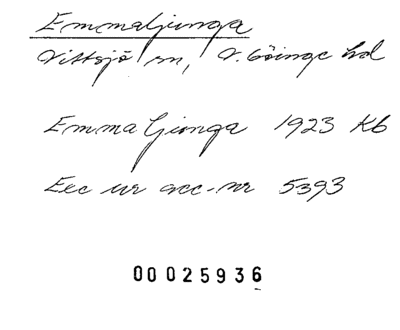 Emmaljunga
Vittsjö sn, V. Göinge hd
Emmaljunga 1923 Kb
Exc ur acc.nr 5393
00025936